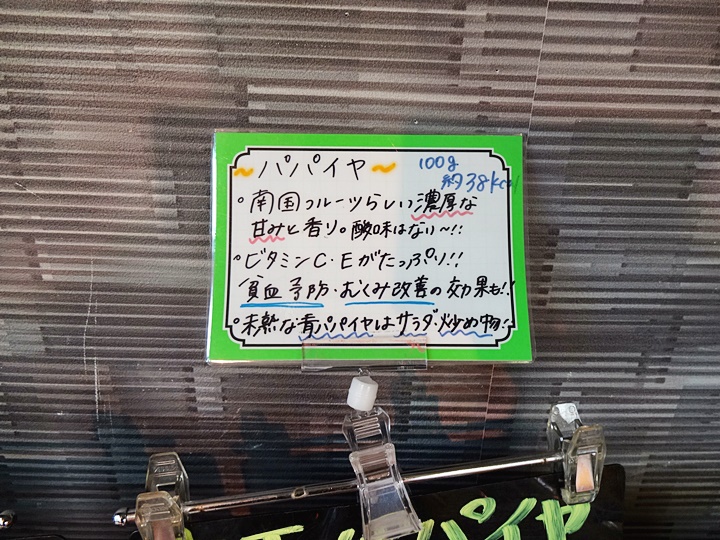 ~パパイヤ~ 100g
約38kcal
• 南国フルーツらしい濃厚な
甘みと香り。酸味はない~!!
• ビタミンC・Eがたっぷり!!
貧血予防・むくみ改善の効果も!!
• 未熟な青パパイヤはサラダ・炒め物に
パパイヤ